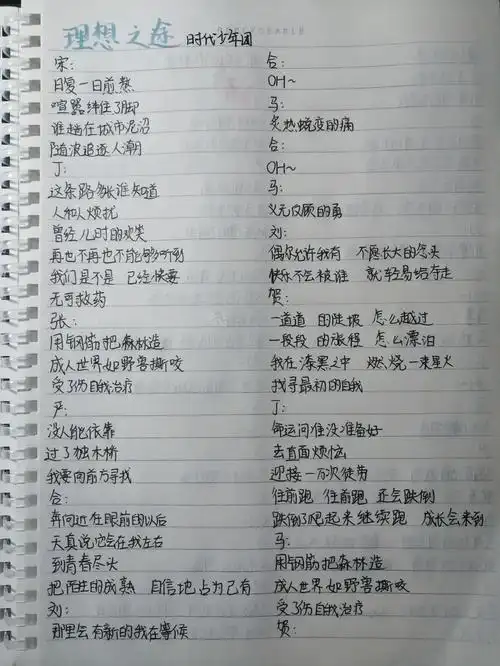 理想之途 时代少年团
宋:
日复一日煎熬
喧嚣绊住了脚
谁趟在城市泥沼
随波追逐人潮
丁:
这条路多长谁知道
人和人烦扰
曾经儿时的欢笑
再也不再也不能够听到
我们是不是 已经快要
无可救药
张:
用钢筋把森林造
成人世界如野兽撕咬
受了伤自我治疗
严:
没人能依靠
过了独木桥
我要向前方寻找
合:
奔向近在眼前的以后
天真说它会在我左右
到青春尽头
把陌生的成熟 自信地占为己有
刘:
那里会有新的我在等候
合:
OH~
马:
炙热蜕变的痛
合:
OH~
马:
义无反顾的勇
刘:
偶尔允许我有 不愿长大的念头
快乐不会被谁 就轻易给夺走
贺:
一道道 的陡坡 怎么越过
一段段 的旅程 怎么漂泊
我在漆黑之中 燃烧一束星火
找寻最初的自我
丁:
命运问谁没准备好
去直面烦恼
迎接一万次徒劳
往前跑 往前跑 还会跌倒
跌倒了爬起来继续跑 成长会来到
马:
用钢筋把森林造
成人世界如野兽撕咬
受了伤自我治疗
贺: